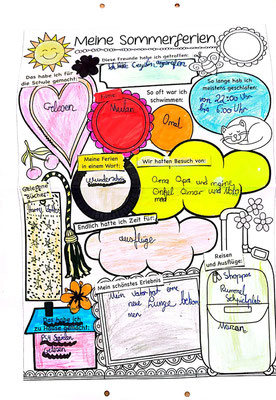 Meine Sommerferien
Diese Freunde habe ich getroffen:
Das habe ich für
die Schule gemacht:
Gelesen
So oft war ich
schwimmen:
Omal
So lange hab ich
meistens geschlafen:
von 22:00 Uhr
bis 6:00 Uhr
Meine Ferien
in einem Wort:
Wunderschön
Wir hatten Besuch von:
Oma Opa und
Onkel Omar und
Gelesene
Bücher:
Harry
Endlich hatte ich Zeit für:
ausflüge
Reisen
und Ausflüge:
Shoppen
Rummel
Mein schönstes Erlebnis
Mein Vater hat eine
neue Lunge bekom
men
Das habe ich
zu Hause gemacht:
Gelesen